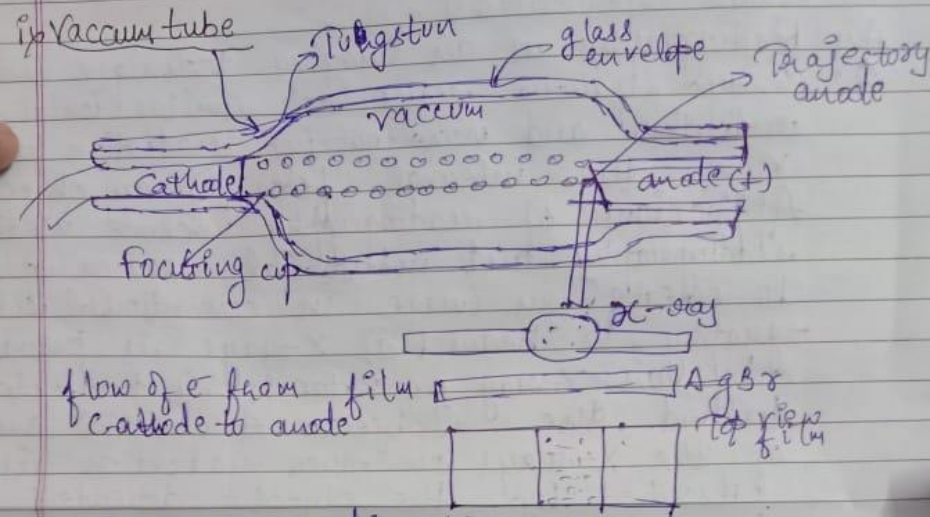 i) Vaccum tube
Tungstun
glass
envelope
Trajectory
anode
vaccum
Cathode
anode (+)
focusing cup
x-ray
flow of e from
Cathode to anode
film
AgBr
Top view
film